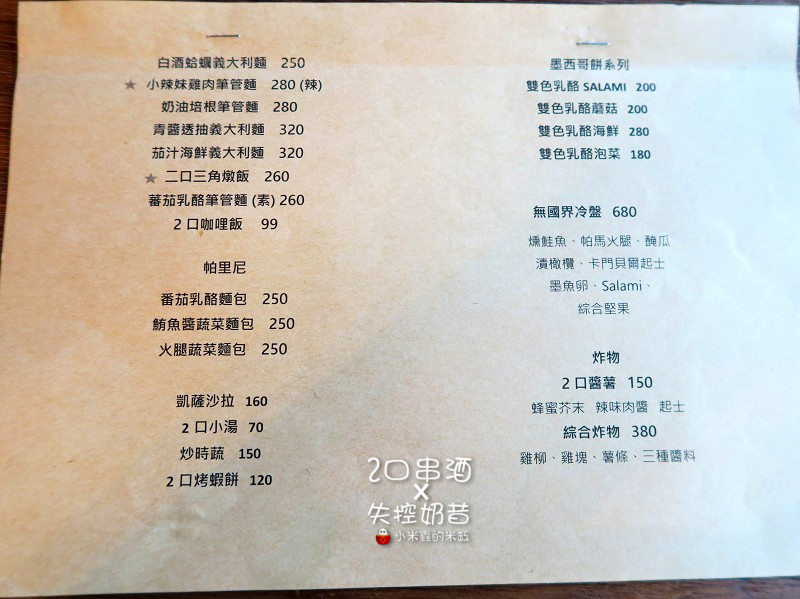 白酒蛤蠣義大利麵 250
★ 小辣妹雞肉筆管麵 280 (辣)
奶油培根筆管麵 280
青醬透抽義大利麵 320
茄汁海鮮義大利麵 320
★ 二口三角燉飯 260
蕃茄乳酪筆管麵 (素) 260
2 口咖哩飯 99
帕里尼
番茄乳酪麵包 250
鮪魚醬蔬菜麵包 250
火腿蔬菜麵包 250
凱薩沙拉 160
2 口小湯 70
炒時蔬 150
2 口烤蝦餅 120
墨西哥餅系列
雙色乳酪 SALAMI 200
雙色乳酪蘑菇 200
雙色乳酪海鮮 280
雙色乳酪泡菜 180
無國界冷盤 680
燻鮭魚、帕馬火腿、醃瓜
漬橄欖、卡門貝爾起士
墨魚卵、Salami、
綜合堅果
炸物
2 口醬薯 150
蜂蜜芥末 辣味肉醬 起士
綜合炸物 380
雞柳、雞塊、薯條、三種醬料
2口串酒
X
失控奶昔
小米蟲的米缸